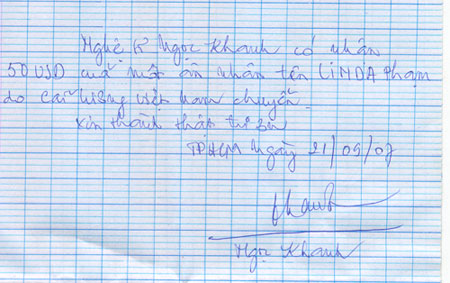 Nghệ sĩ Ngọc Khanh có nhận
50 USD của một ân nhân tên LiNDA Phạm
do cải lương việt nam chuyển.
xin thành thật tri ân
TPHCM Ngày 21/09/07
Khanh
Ngọc Khanh